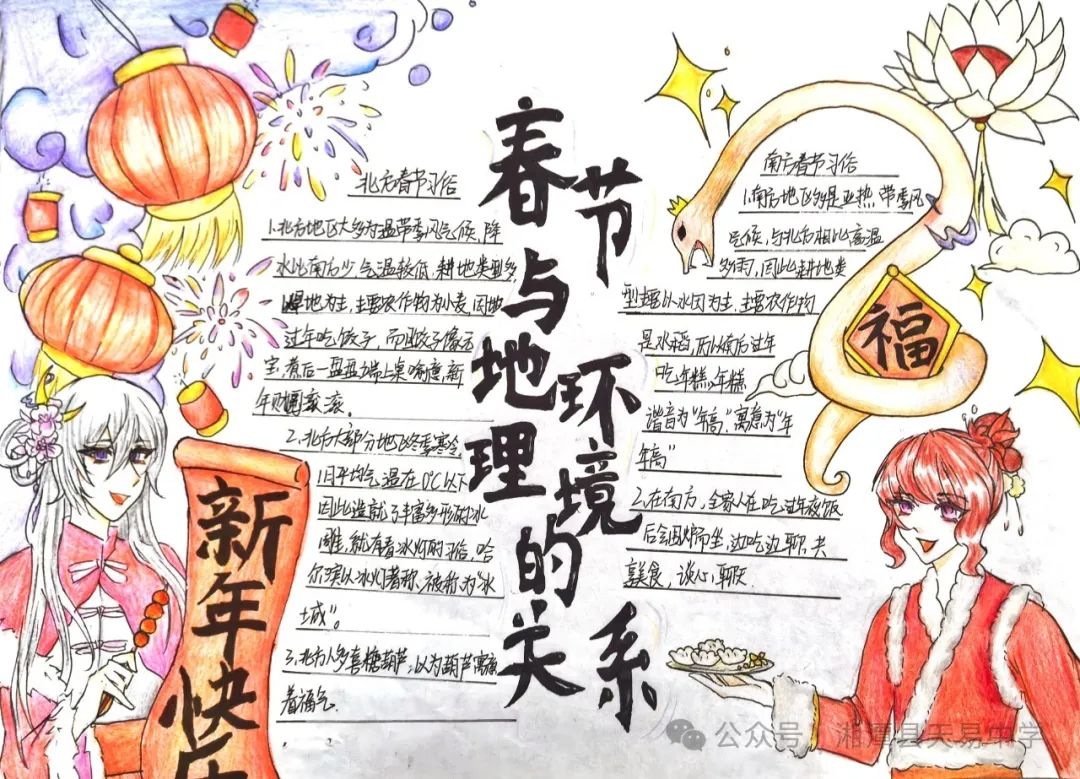 春节
与地理环境的关系
北方春节习俗
1.北方地区大多为温带季风气候,降
水比南方少,气温较低,耕地类型多
旱地为主,主要农作物为小麦,因此
过年吃饺子,而且饺子像元
宝,煮后一盘盘端上桌,寓意新
年财源滚滚。
2.北方大部分地区冬季寒冷,
1月平均气温在0℃以下
因此造就了丰富多彩的冰
雕,就有看冰灯的习俗,哈
尔滨以冰灯著称,被称为"冰
城"。
3.北方人多喜糖葫芦,以为葫芦寓意
着福气.
南方春节习俗
1.南方地区多是亚热带季风
气候,与北方相比高温
多雨,因此耕地类
型主要以水田为主,主要农作物
是水稻,所以南方过年
吃年糕,年糕
谐音为"年高",寓意为"年
年高"
2.在南方,全家人在吃过年夜饭
后会围炉而坐,边吃边聊,共
享美食,谈心,聊天.
新年快乐
福
公众号 湘潭县天易中学